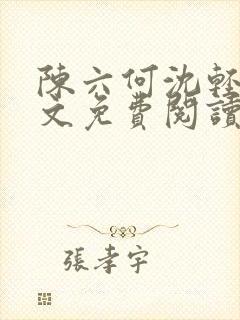 陳六何沈輕
文免費閱讀
張孝宇